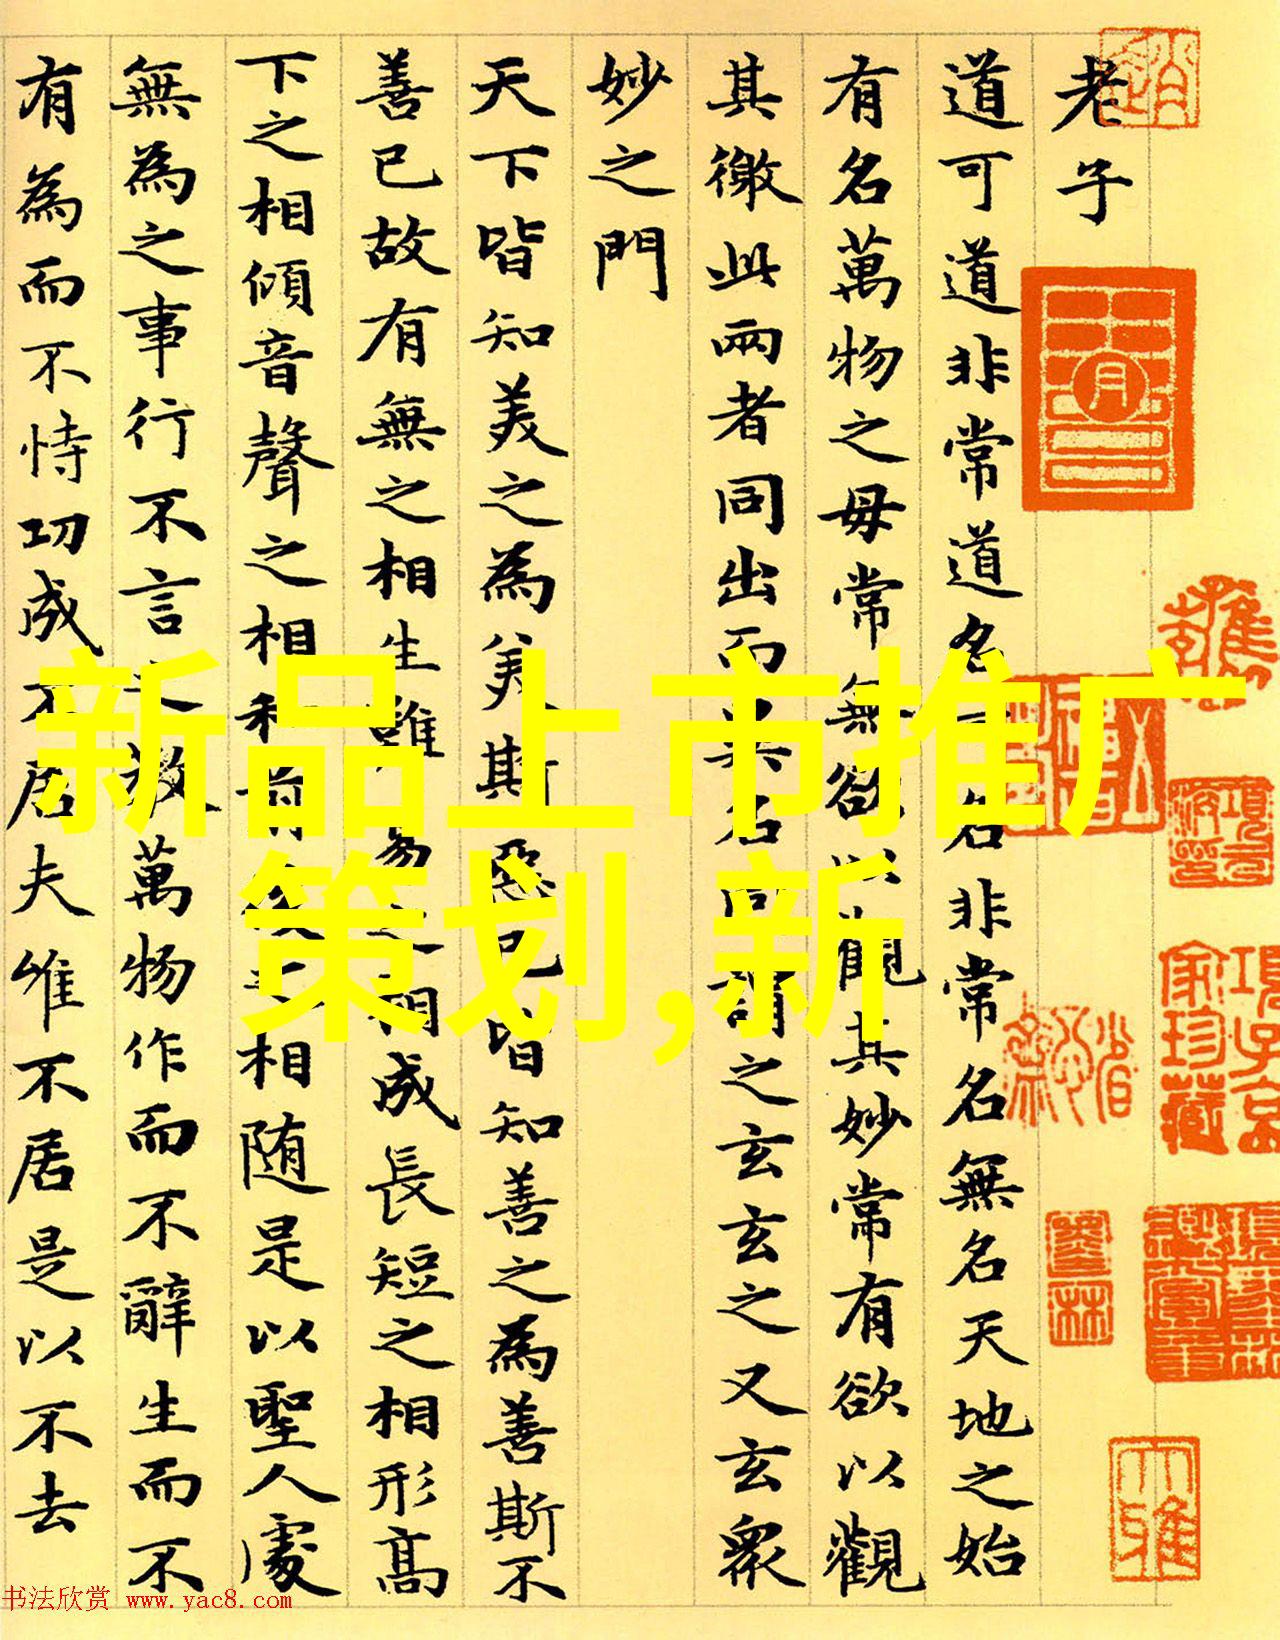 老子
道可道非常道名可名非常名無名天地之始
有名萬物之母常無欲以觀其妙常有欲以觀
其徼此兩者同出而異名同謂之玄玄之又玄眾
妙之門
天下皆知美之為美斯惡已皆知善之為善斯不
善已故有無之相生難易之相成長短之相形高
下之相傾音聲之相和前後之相随是以聖人處
無為之事行不言之教萬物作而不辭生而不
有為而不恃功成不居夫唯不居是以不去
新品上市推广
策划,新
項子京
家珍藏
书法欣赏 www.yac8.com